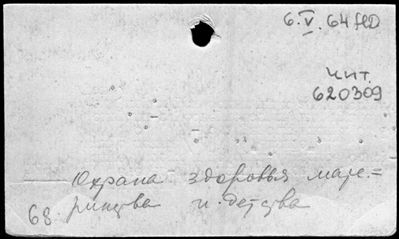 6.V.64
Чит.
620309
Охрана здоровья мате=
ринства и детства
68.